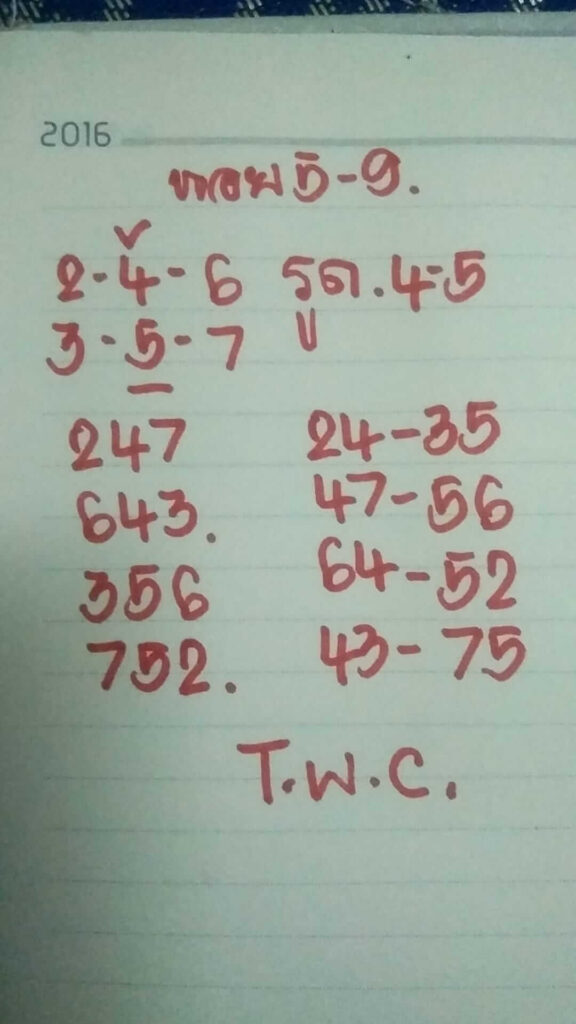 2016
หาลอย 5-9.
2-4-6 รูด.4-5
3-5-7
247 24-35
643. 47-56
356 64-52
752. 43-75
T.W.C.